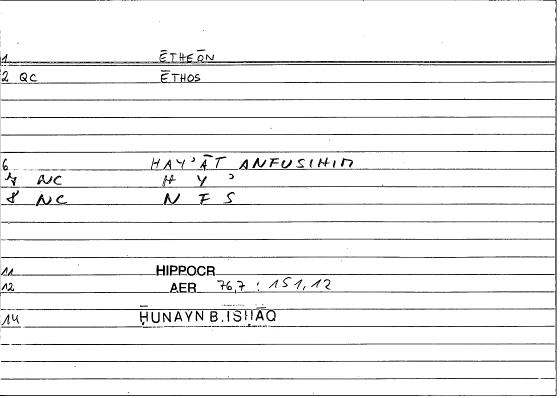 1 ĒTHEŌN
2 QC ĒTHOS
6 HAY'ĀT ANFUSIHIM
7 NC H Y '
8 NC N F S
11 HIPPOCR
12 AER 76,7 : 151,12
14 ḤUNAYN B. ISḤĀQ